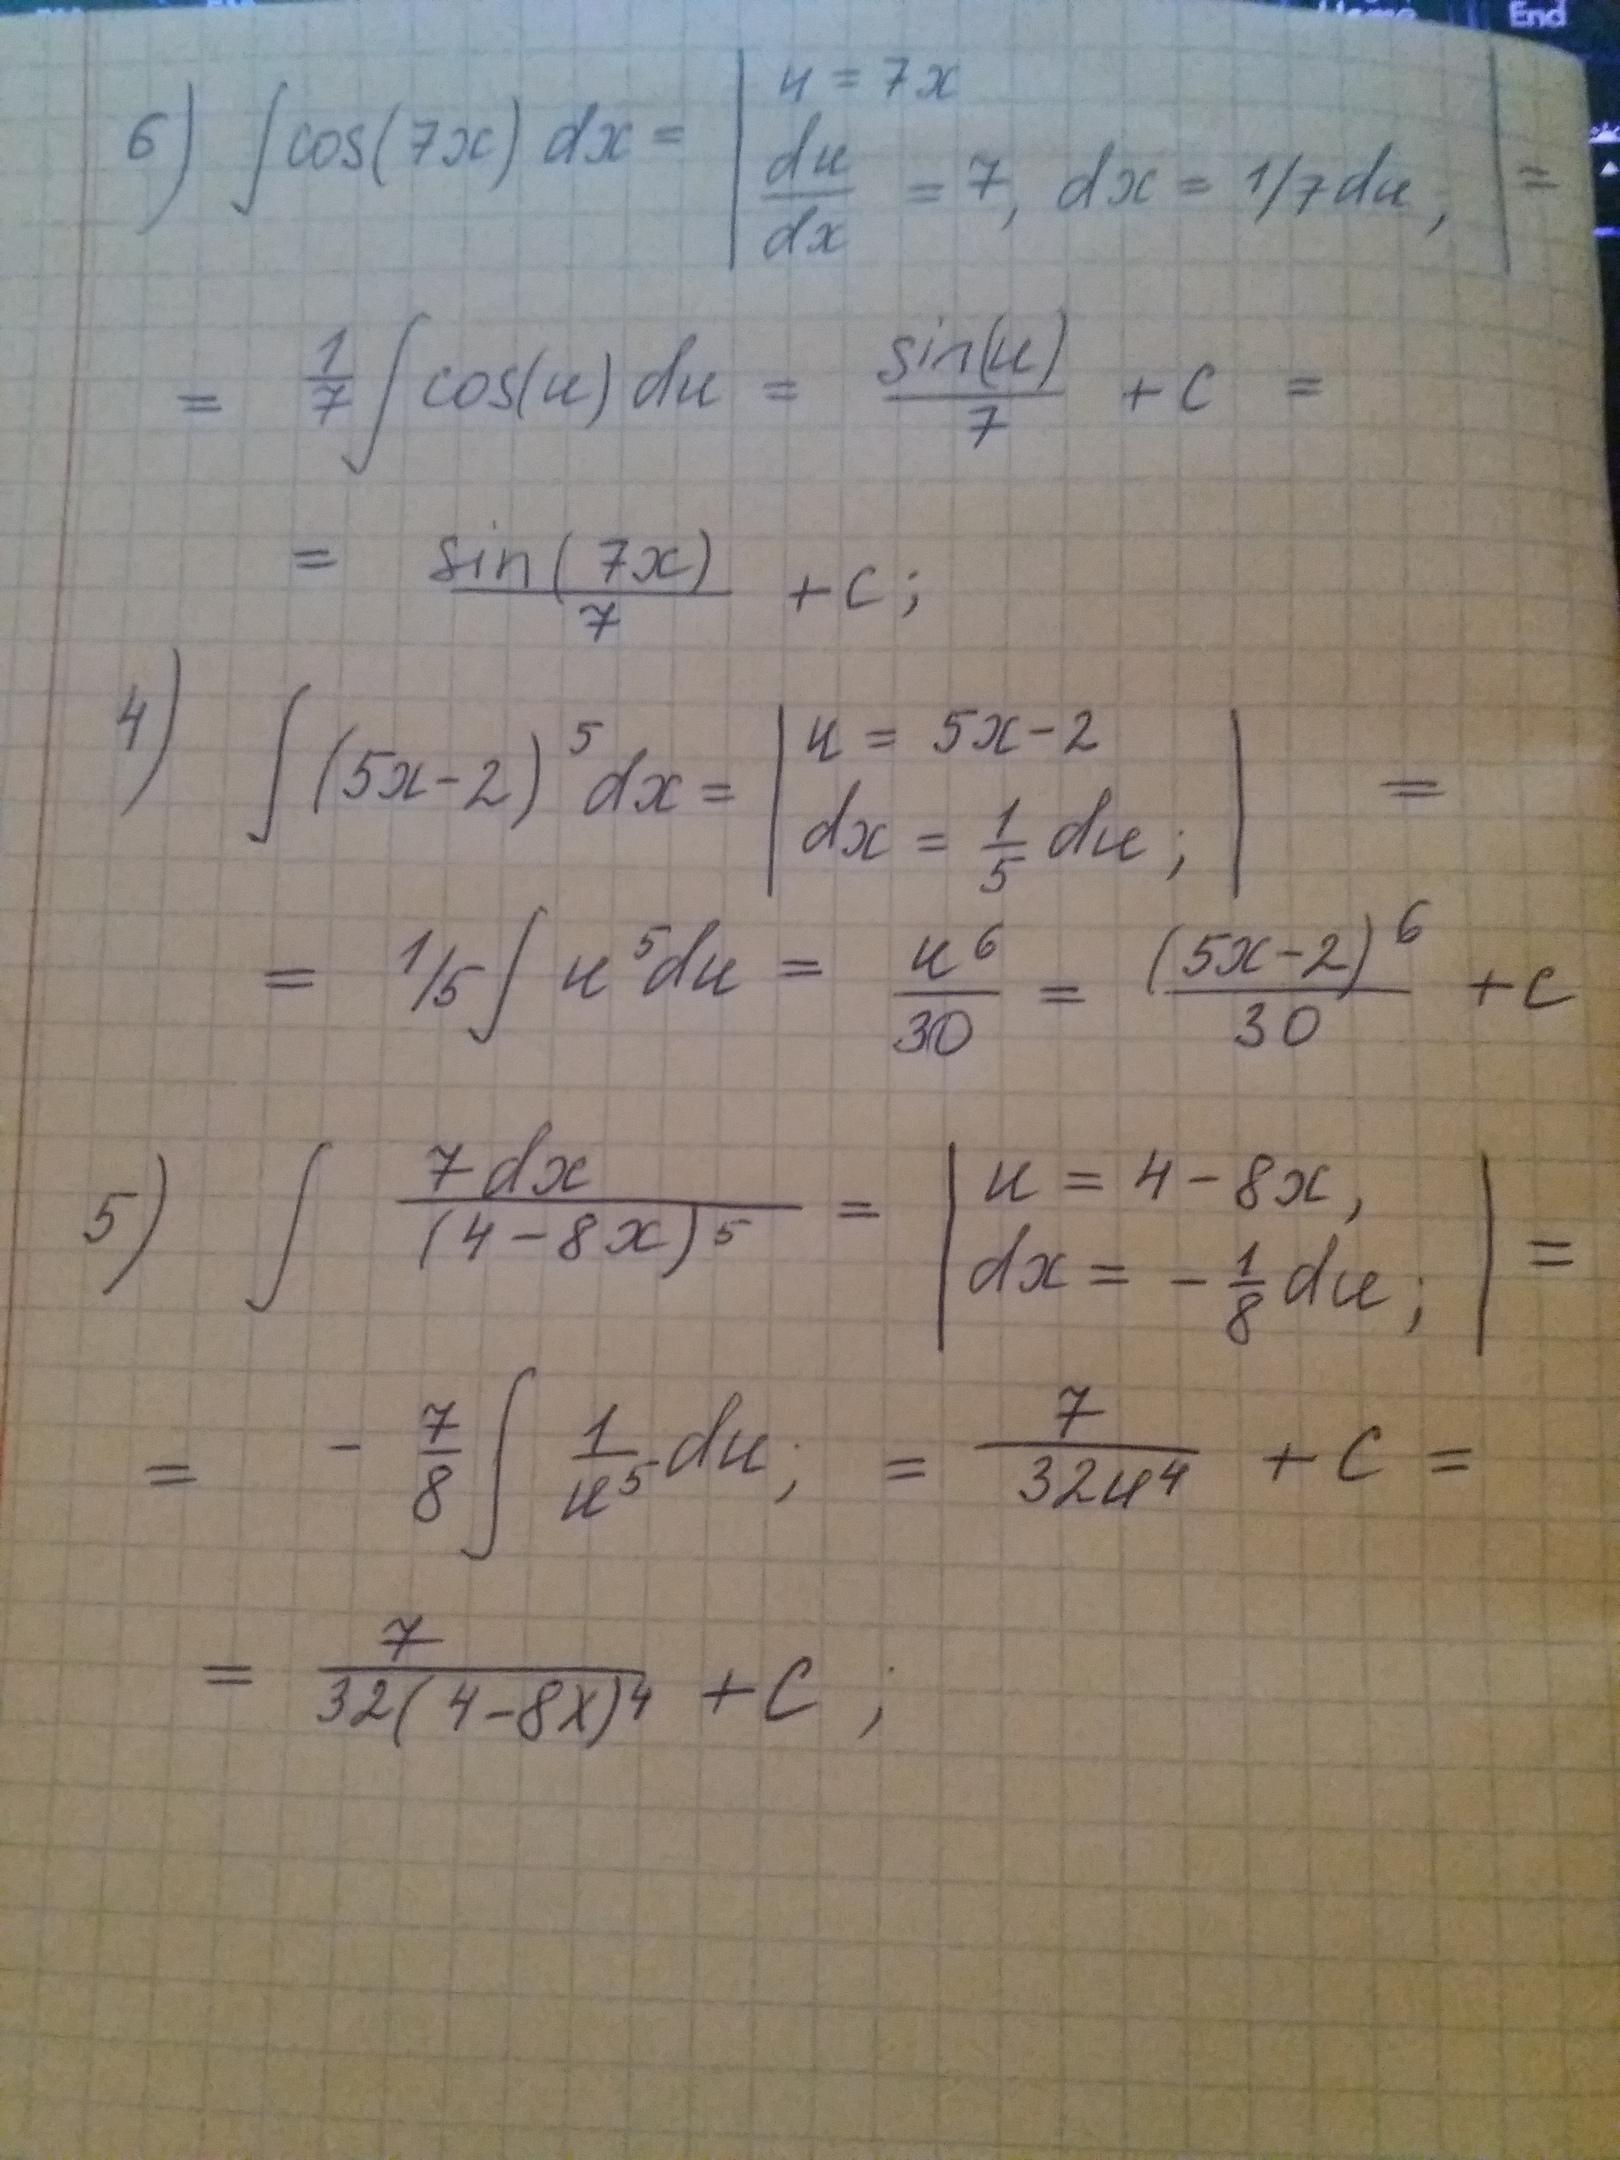 Home End
6) ∫cos(7x) dx = | u = 7x
du/dx = 7, dx = 1/7 du; | =
= 1/7 ∫ cos(u) du = sin(u)/7 + C =
= sin(7x)/7 + C;
4) ∫(5x-2)^5 dx = | u = 5x-2
dx = 1/5 du; | =
= 1/5 ∫ u^5 du = u^6/30 = (5x-2)^6/30 + C
5) ∫ 7dx/(4-8x)^5 = | u = 4-8x,
dx = -1/8 du; | =
= -7/8 ∫ 1/u^5 du; = 7/32u^4 + C =
= 7/32(4-8x)^4 + C;